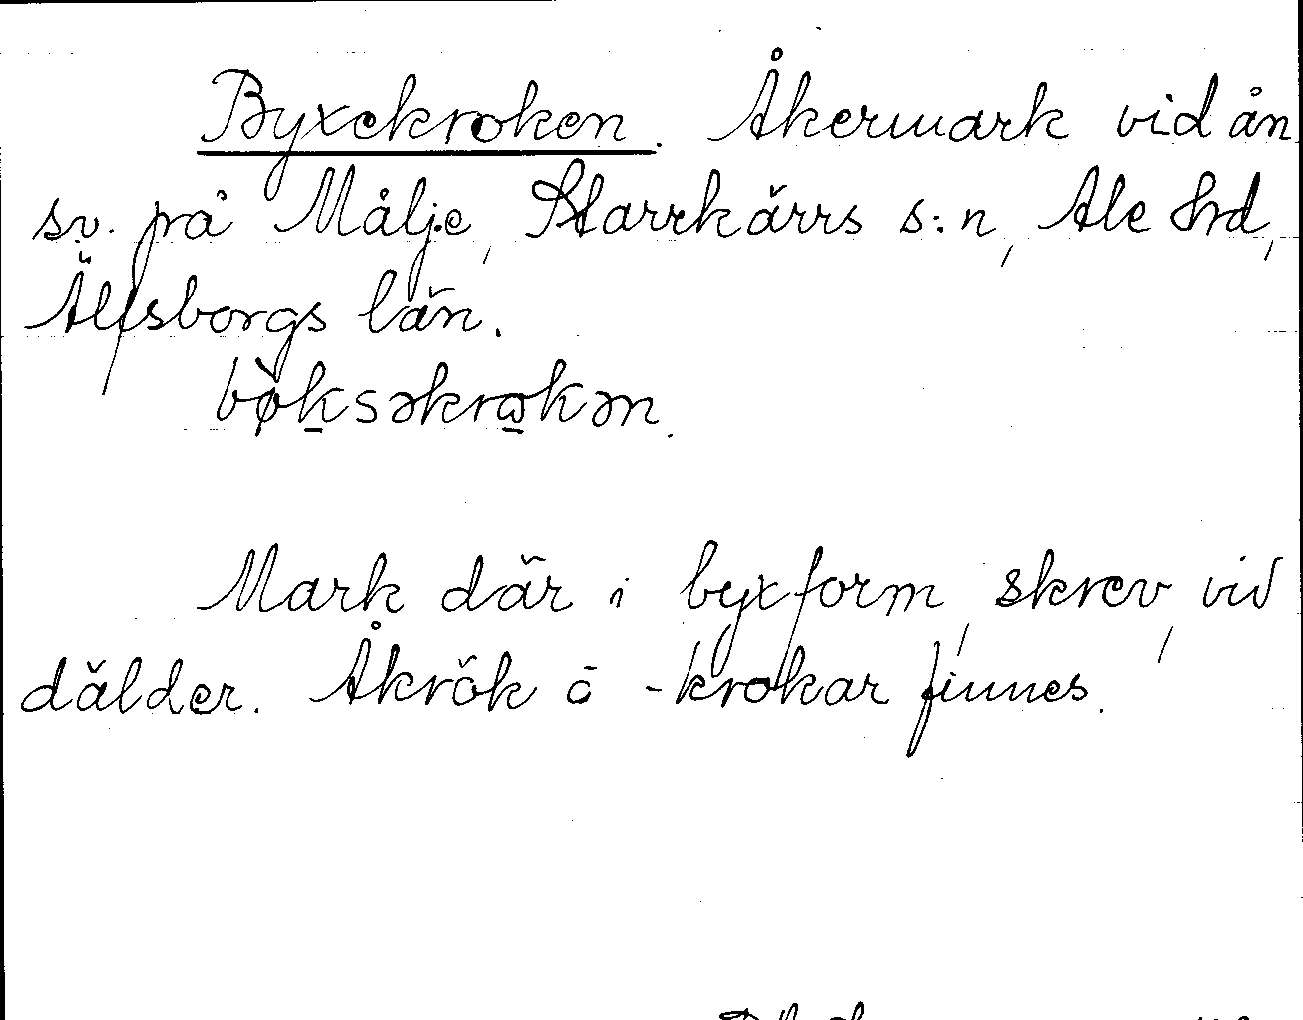 Byxekroken. Åkermark vid ån
sv. på Målje, Starrkärrs s:n, Ale Hrd,
Älfsborgs län.
bø̀ksəkrωkən.
Mark där i byxform, skrev, vid
dälder. Åkrök o -krokar finnes.